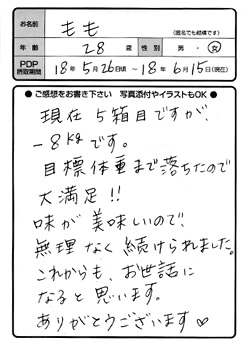 お名前 もも (匿名でも結構です)
年齢 28 歳 性別 男・女
PDP摂取期間 18年5月26日頃~18年6月15日(現在)
●ご感想をお書き下さい 写真添付やイラストもOK●
現在 5箱目ですが、
-8kgです。
目標体重まで落ちたので
大満足!!
味が美味しいので、
無理なく続けられました。
これからも、お世話に
なると思います。
ありがとうございます♡